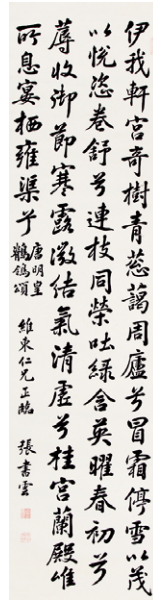 伊我軒宮奇樹青葱藹周廬兮冒霜停雪以茂
以悅恣卷舒兮連枝同榮吐綠含英曜春初兮
蓐收御節寒露微結氣清虛兮桂宮蘭殿唯
所息宴栖雍渠兮
唐明皇
鶺鴒頌
維東仁兄正臨
張書雲